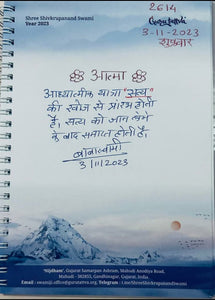 Shree Shivkrupanand Swami
Year 2023
2614
3-11-2023
शुक्रवार
आत्मा
आध्यात्मीक यात्रा "सत्य"
की खोज से प्रारंभ होती
है, सत्य को जान लेने
के बाद समाप्त होती है,
बाबास्वामी
3/11/2023
"Nijdham", Gujarat Samarpan Ashram, Mahudi Amodhya Road,
Mahudi - 382855, Gandhinagar, Gujarat, India
Email : swamiji.office@gurutattva.org, Telegram : t.me/ShreeShivkrupanandSwami